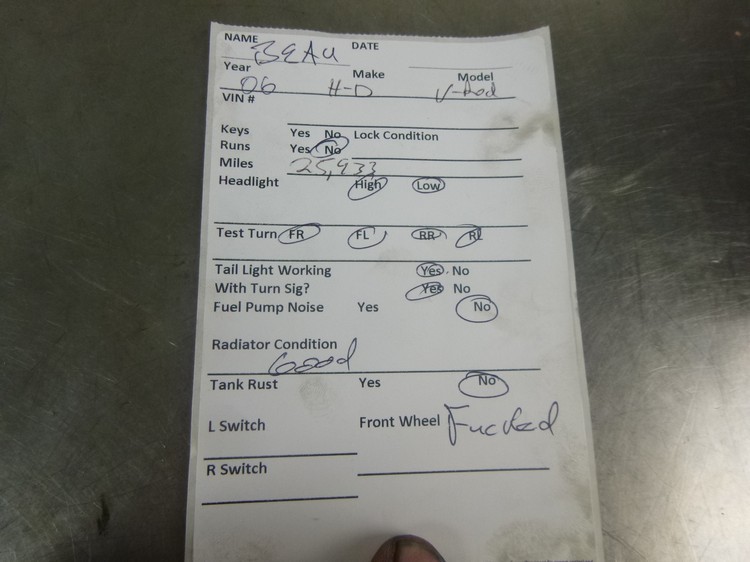 NAME BEAU DATE
Year 06 Make H-D Model V-Rod
VIN #
Keys Yes No Lock Condition
Runs Yes No
Miles 25,933
Headlight High Low
Test Turn FR FL RR RL
Tail Light Working Yes No
With Turn Sig? Yes No
Fuel Pump Noise Yes No
Radiator Condition
Good
Tank Rust Yes No
L Switch Front Wheel Fucked
R Switch